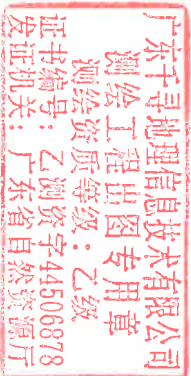 广东千寻地理信息技术有限公司
测绘工程出图专用章
测绘资质等级：乙级
证书编号：乙测资字44506878
发证机关：广东省自然资源厅